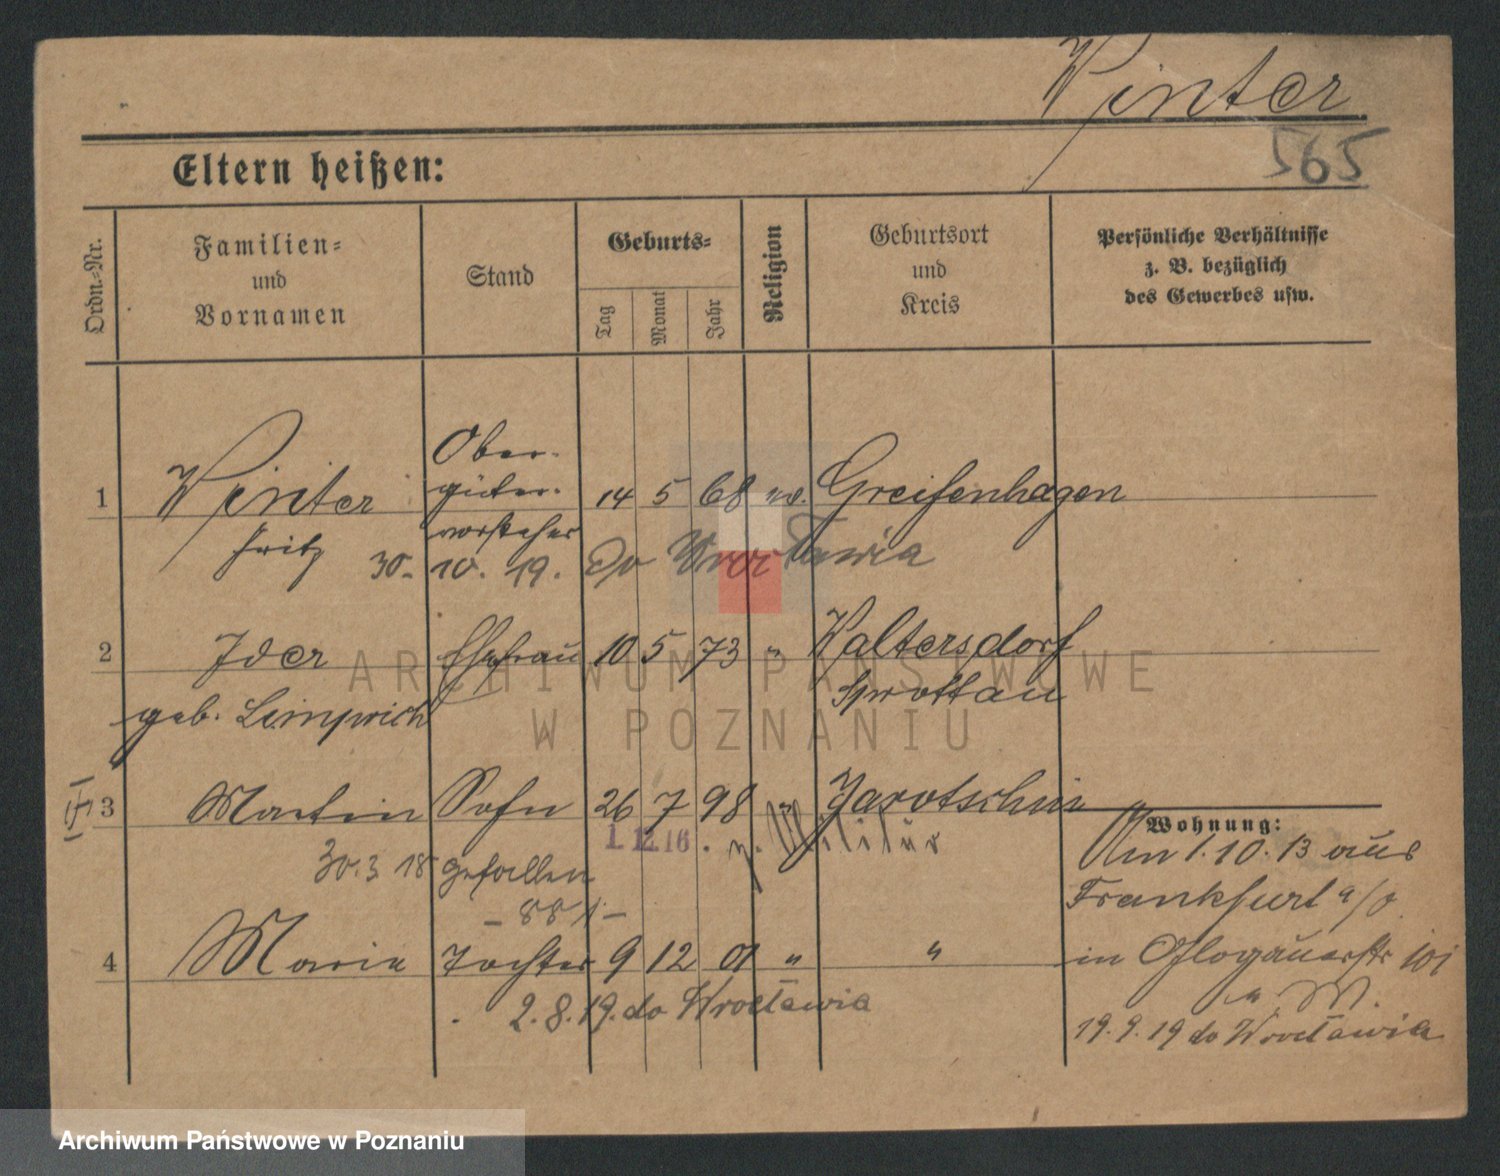 Winter
565
Eltern heißen:
Ordn.-Nr.
Familien-
und
Vornamen
Stand
Geburts-
Tag
Monat
Jahr
Religion
Geburtsort
und
Kreis
Persönliche Verhältnisse
z. B. bezüglich
des Gewerbes usw.
1 Winter Ober- 14 5 68 ev. Greifenhagen
güter-
Fritz vorsteher
30. 10. 19. do Wrocławia
2 Ida Ehefrau 10 5 73 " Waltersdorf
Sprottau
geb.
3 Martin Sohn 26 7 98 " Jarotschin
1. 12. 16. z. Militär
30.3 18 gefallen
4 Maria Tochter 9 12 01 " "
2. 8. 19. do Wrocławia
Wohnung:
Am 1. 10. 13 aus
Frankfurt a/O
in Glogauerstr 101
19. 9. 19 do Wrocławia
ARCHIWUM PAŃSTWOWE
W POZNANIU
Archiwum Państwowe w Poznaniu